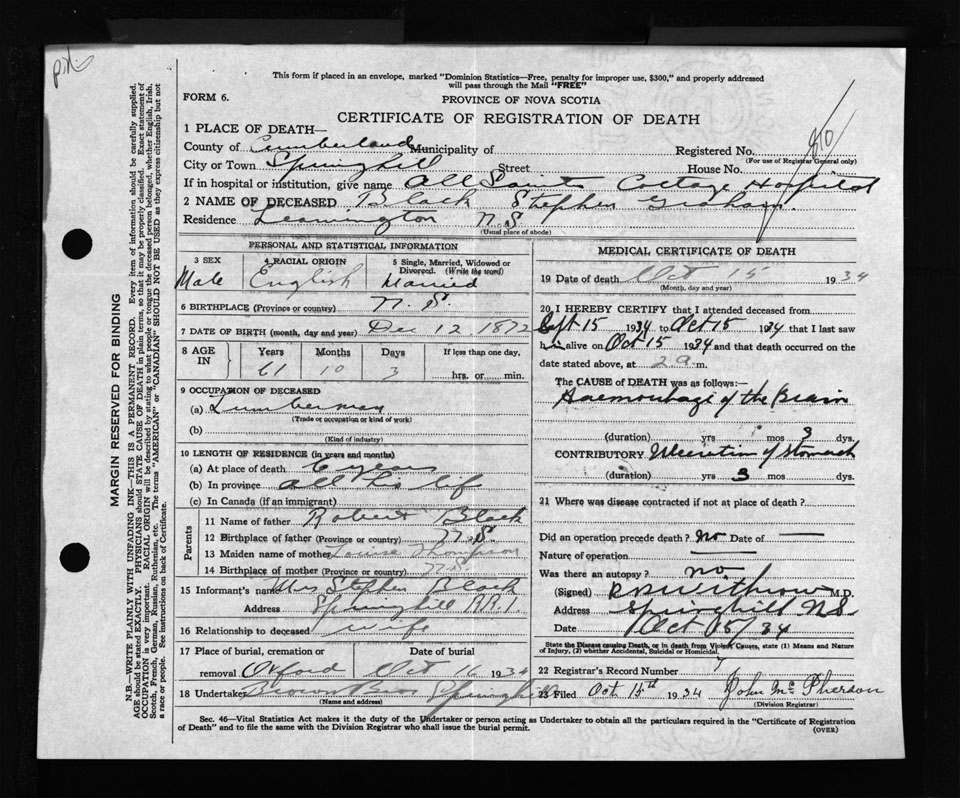 This form if placed in an envelope, marked "Dominion Statistics—Free, penalty for improper use, $300," and properly addressed
will pass through the Mail "FREE"
FORM 6.
PROVINCE OF NOVA SCOTIA
CERTIFICATE OF REGISTRATION OF DEATH
810
1 PLACE OF DEATH—
County of Cumberland Municipality of Registered No.
(For use of Registrar General only)
City or Town Springhill Street House No.
If in hospital or institution, give name All Saints Cottage Hospital
2 NAME OF DECEASED Black Stephen Graham.
Residence Leamington N.S
(Usual place of abode)
PERSONAL AND STATISTICAL INFORMATION
3 SEX 4 RACIAL ORIGIN 5 Single, Married, Widowed or
Divorced. (Write the word)
Male English Married
6 BIRTHPLACE (Province or country) N. S.
7 DATE OF BIRTH (month, day and year) Dec 12 1872
8 AGE IN Years Months Days If less than one day,
61 10 3 hrs. or min.
9 OCCUPATION OF DECEASED
(a) Lumberman
(Trade or occupation or kind of work)
(b)
(Kind of industry)
10 LENGTH OF RESIDENCE (in years and months)
(a) At place of death 6 years
(b) In province all his life
(c) In Canada (if an immigrant)
Parents
11 Name of father Robert Black
12 Birthplace of father (Province or country) N.S.
13 Maiden name of mother Louise Thompson
14 Birthplace of mother (Province or country) N.S
15 Informant's name Mrs Stephen Black
Address Springhill R.R.1.
16 Relationship to deceased wife
17 Place of burial, cremation or Date of burial
removal Oxford Oct 16 1934
18 Undertaker Brown Bros Springhill
(Name and address)
MEDICAL CERTIFICATE OF DEATH
19 Date of death Oct 15 1934
(Month, day and year)
20 I HEREBY CERTIFY that I attended deceased from
Sept 15 1934 to Oct 15 1934 that I last saw
him alive on Oct 15 1934 and that death occurred on the
date stated above, at 2 a. m.
The CAUSE OF DEATH was as follows:—
Haemorrhage of the Brain
(duration) yrs mos 3 dys.
CONTRIBUTORY Ulceration of Stomach
(duration) yrs 3 mos dys.
21 Where was disease contracted if not at place of death?
Did an operation precede death? No Date of —
Nature of operation —
Was there an autopsy? no
(Signed) Withrow M.D.
Address Springhill NS
Date Oct 15/34
State the Disease causing Death, or in death from Violent Causes, state (1) Means and Nature
of Injury, (2) whether Accidental, Suicidal or Homicidal.
22 Registrar's Record Number
23 Filed Oct 15th 1934 John McPherson
(Division Registrar)
Sec. 46—Vital Statistics Act makes it the duty of the Undertaker or person acting as Undertaker to obtain all the particulars required in the "Certificate of Registration
of Death" and to file the same with the Division Registrar who shall issue the burial permit.
(OVER)
MARGIN RESERVED FOR BINDING
N.B.—WRITE PLAINLY WITH UNFADING INK—THIS IS A PERMANENT RECORD. Every item of information should be carefully supplied.
AGE should be stated EXACTLY. PHYSICIANS should STATE CAUSE OF DEATH in plain terms, so that it may be properly classified. Exact statement of
OCCUPATION is very important. RACIAL ORIGIN will be described by stating to what people or tongue the deceased person belonged, whether English, Irish,
Scotch, French, German, Russian, Ruthenian, etc. The terms "AMERICAN" or "CANADIAN" SHOULD NOT BE USED as they express citizenship but not
a race or people. See instructions on back of Certificate.